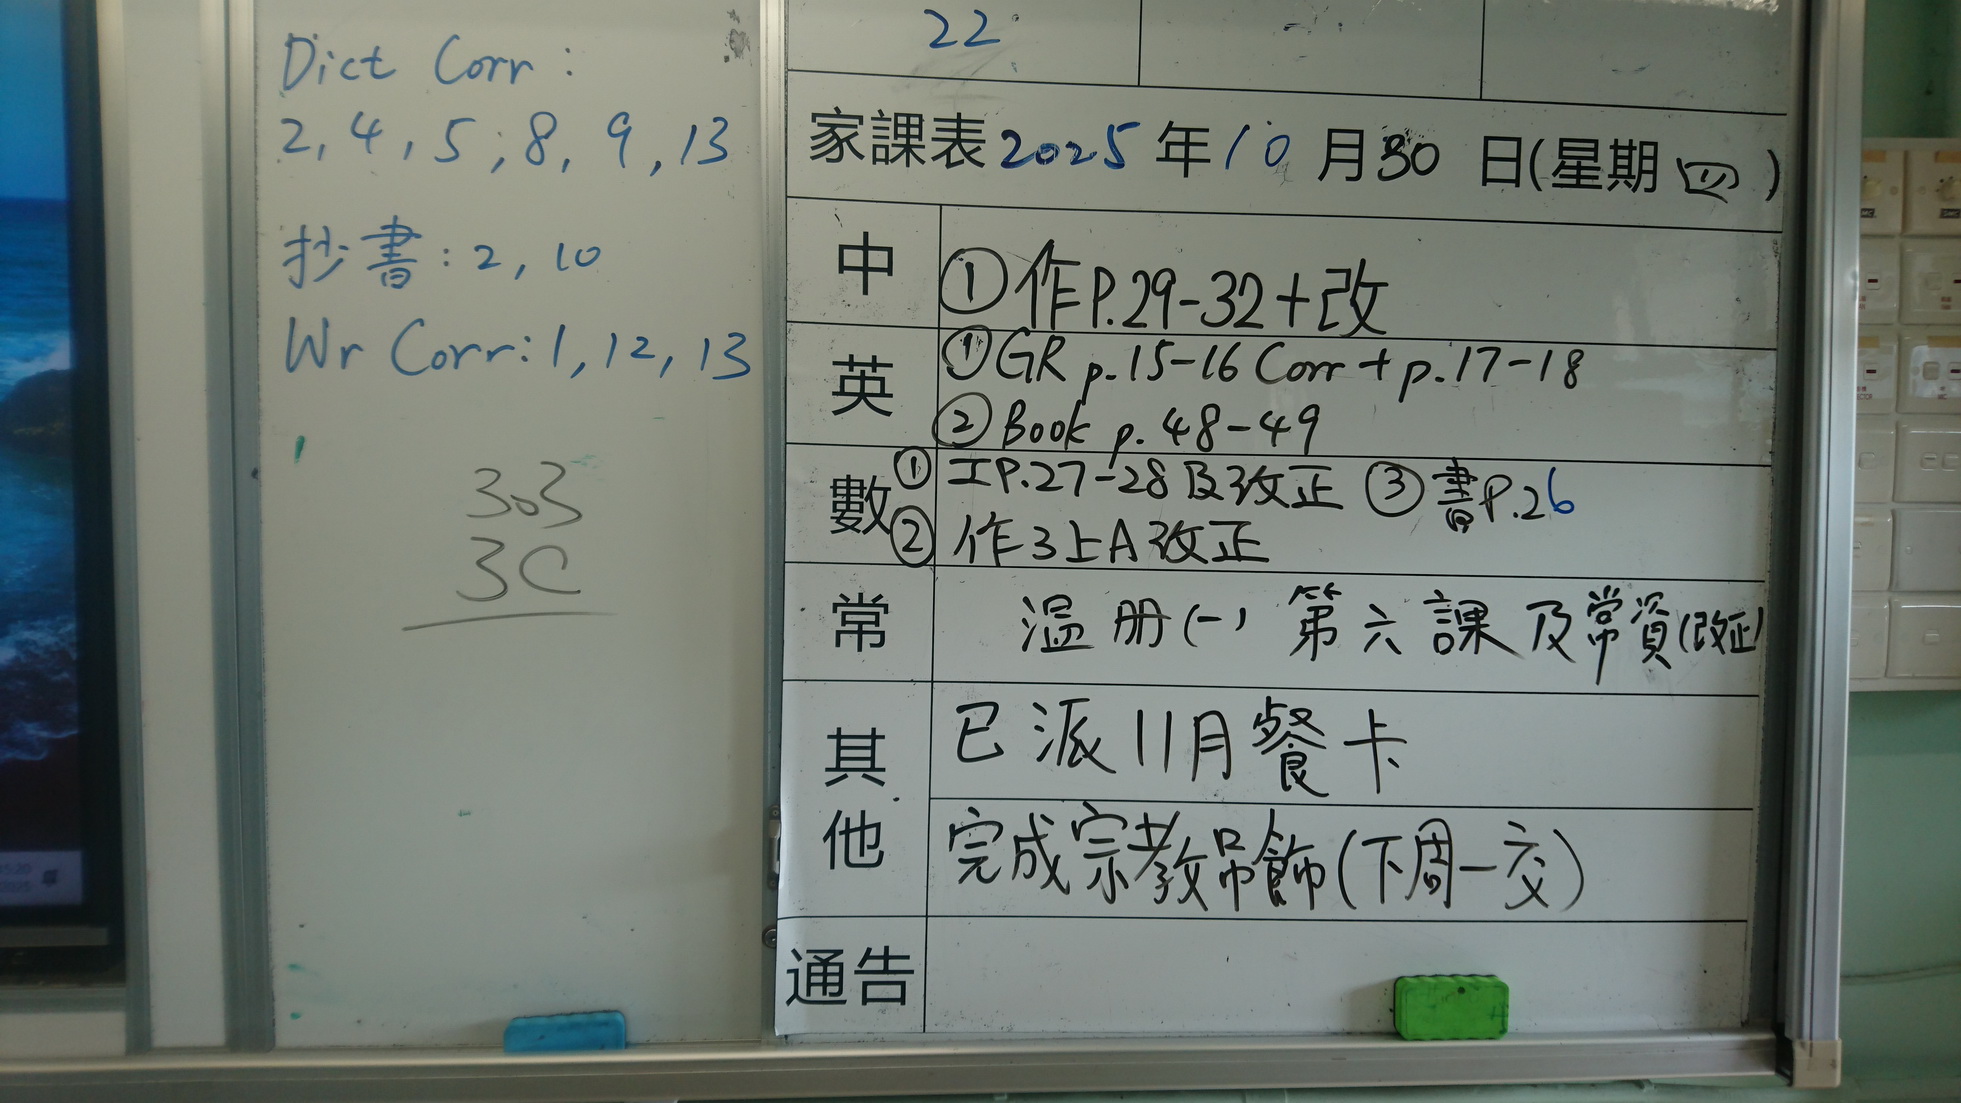 Dict Corr :
2, 4, 5, 8, 9, 13
抄書 : 2, 10
Wr Corr : 1, 12, 13
303
3C
22
家課表 2025 年 10 月 30 日(星期 四 )
中
① 作P.29-32+改
英
① GR p.15-16 Corr + p.17-18
② Book p. 48-49
數
① 工P.27-28及改正 ③ 書P.26
② 作3上A改正
常
溫册(一) 第六課及常資(改正)
其他
已派11月餐卡
完成宗教吊飾(下周一交)
通告